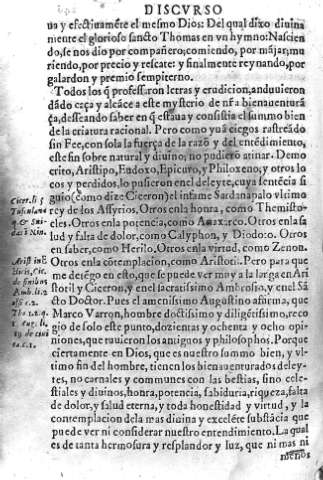 DISCVRSO
ua y efectiuamẽte el mesmo Dios: Del qual dixo diuina
mente el glorioso sancto Thomas en vn hymno: Nascien
do, se nos dio por compañero; comiendo, por mãjar; mu
riendo, por precio y rescate: y finalmente reynando, por
galardon y premio sempiterno.
Todos los q̃ professaron letras y erudicion, anduuieron
dãdo caça y alcãce a este mysterio de nr̃a bienauenturã
ça, desseando saber en q̃ estaua y consistia el summo bien
de la criatura racional. Pero como yuã ciegos rastreãdo
sin Fee, con sola la fuerça de la razõ y del entẽdimiento,
este fin sobre natural y diuino, no pudierõ atinar. Demo
crito, Aristipo, Eudoxo, Epicuro, y Philoxeno; y otros lo
cos y perdidos, lo pusieron en el deleyte, cuya sentẽcia si
guio (como dize Ciceron) el infame Sardanapalo vltimo
rey de los Assyrios. Otros en la honra, como Themisto-
cles. Otros en la potencia, como Anaxarco. Otros en la sa
lud y falta de dolor, como Calyphon, y Diodoro. Otros
en saber, como Herilo. Otros en la virtud, como Zenon.
Otros en la cõtemplacion, como Aristotil. Pero para que
me detẽgo en esto, que se puede ver muy a la larga en Ari
stotil y Ciceron, y en el sacratissimo Ambrosio, y en el Sã
cto Doctor. Pues el amenissimo Augustino afirma, que
Marco Varron, hombre doctissimo y diligẽtissimo, reco
gio de solo este punto, dozientas y ochenta y ocho opi-
niones, que tuuieron los antiguos y philosophos. Porque
ciertamente en Dios, que es nuestro summo bien, y vl-
timo fin del hombre, tienen los bienauenturados deley-
tes, no carnales y communes con las bestias, sino cele-
stiales y diuinos, honra, potencia, sabiduria, riqueza, falta
de dolor, y salud eterna, y toda honestidad y virtud, y la
contemplacion de la mas diuina y excelẽte substãcia que
puede ver ni considerar nuestro entendimiento. La qual
es de tanta hermosura y resplandor y luz, que ni mas ni
menos
Cicer. li 5
Tusculana
q. & Sui-
das
Arist. in E
thicis, Cic.
de finibus
Amb. li. 2
offi c. 2.
Tho 1. 2. q.
2. Aug. li.
19 de ciui
ta. c. 1.